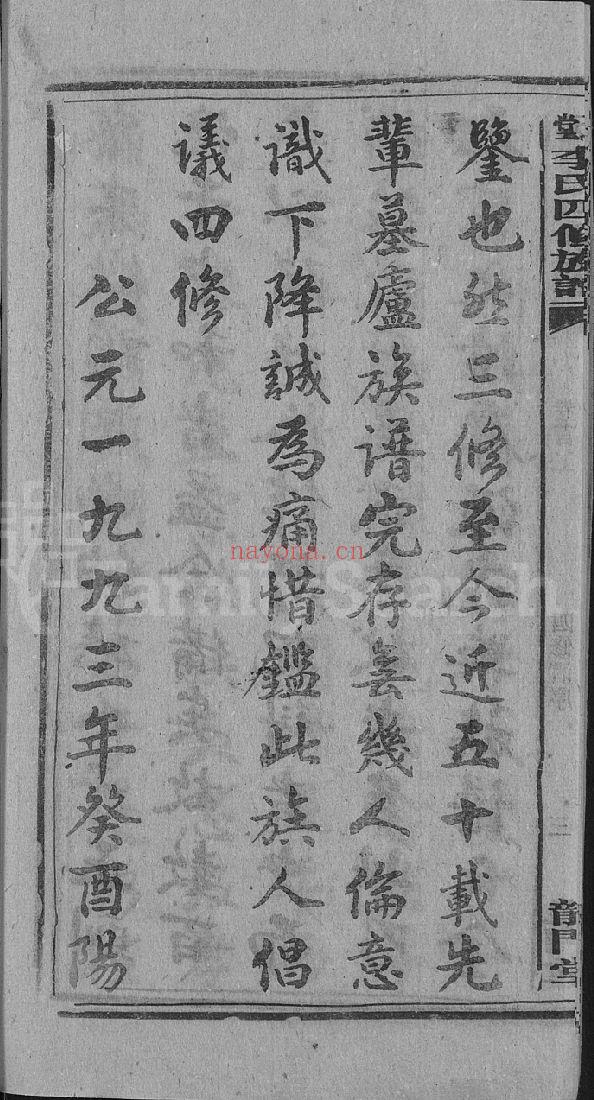 堂李氏四修族譜
四修序
三
龍門堂
鑒也然三修至今近五十載先
輩墓廬族谱完存無幾人倫意
識下降誠為痛惜鑑此族人倡
議四修
公元一九九三年癸酉陽
nayona.cn
FamilySearch